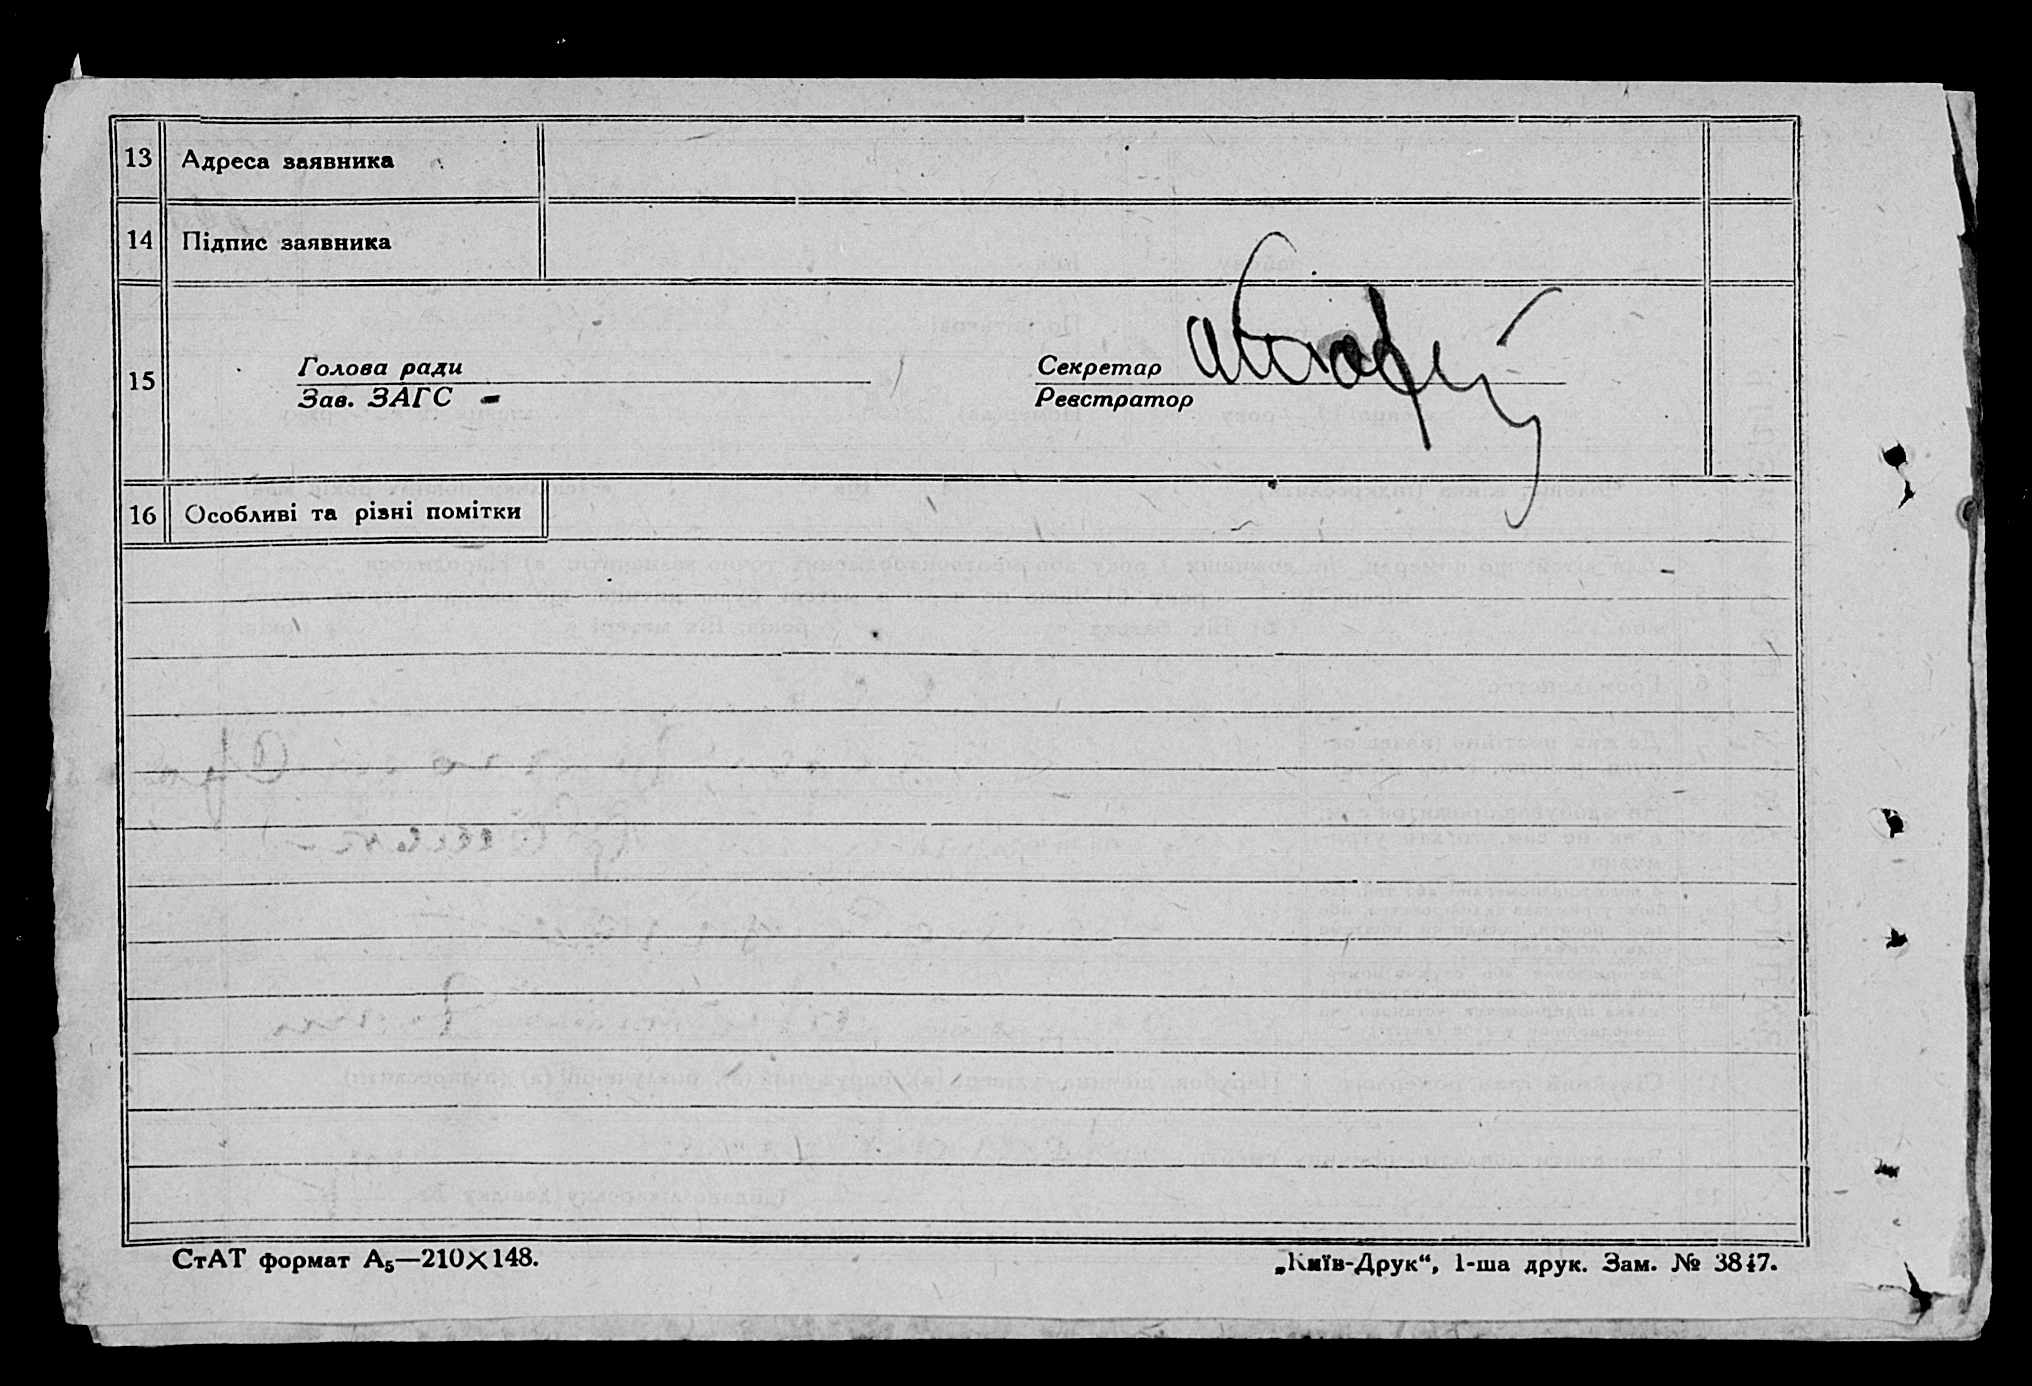 13 Адреса заявника
14 Підпис заявника
15 Голова ради Секретар
Зав. ЗАГС Реєстратор
16 Особливі та різні помітки
СтАТ формат А₅—210×148. „Київ-Друк“, 1-ша друк. Зам. №